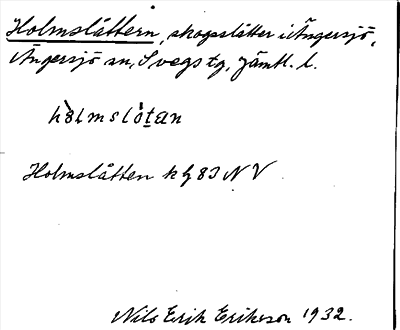 Holmslåttern, skogsslåtter i Ängersjö,
Ängersjö sn, Svegs tg, Jämtl. l.
hòlmslòtan
Holmslåtten k bl 83 NV
Nils Erik Eriksson 1932.